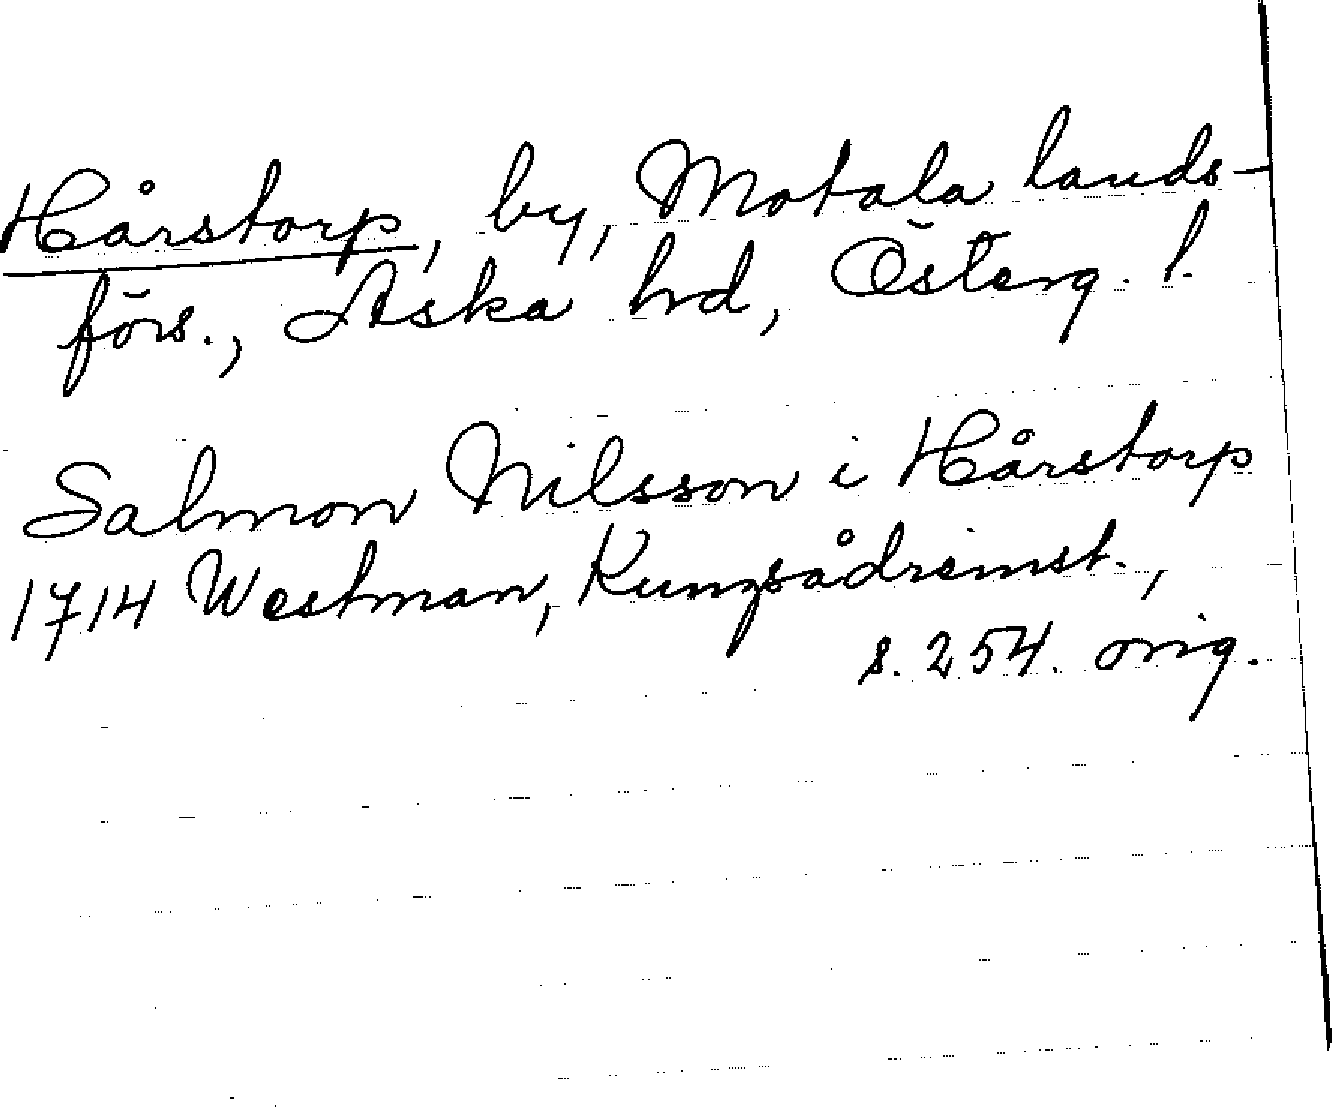 Hårstorp, by, Motala lands-
förs., Aska hd, Österg. l.
Salmon Nilsson i Hårstorp
1714 Westman, Kungsådreinst.,
s. 254. orig.